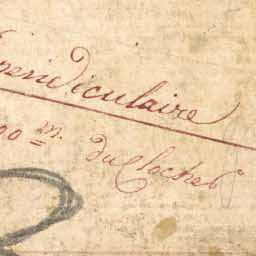 pendiculaire
00 m. du clocher